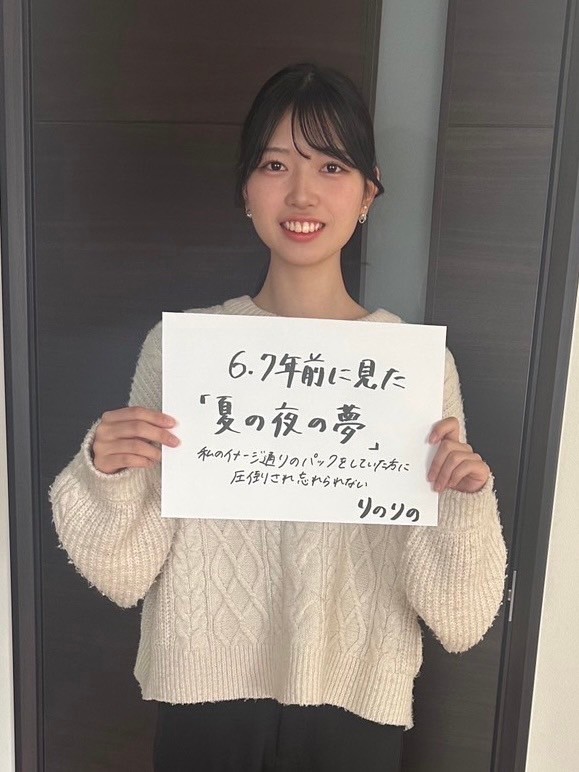 6.7年前に見た
「夏の夜の夢」
私のイメージ通りのパックをしていた方に
圧倒され忘れられない
りのりの